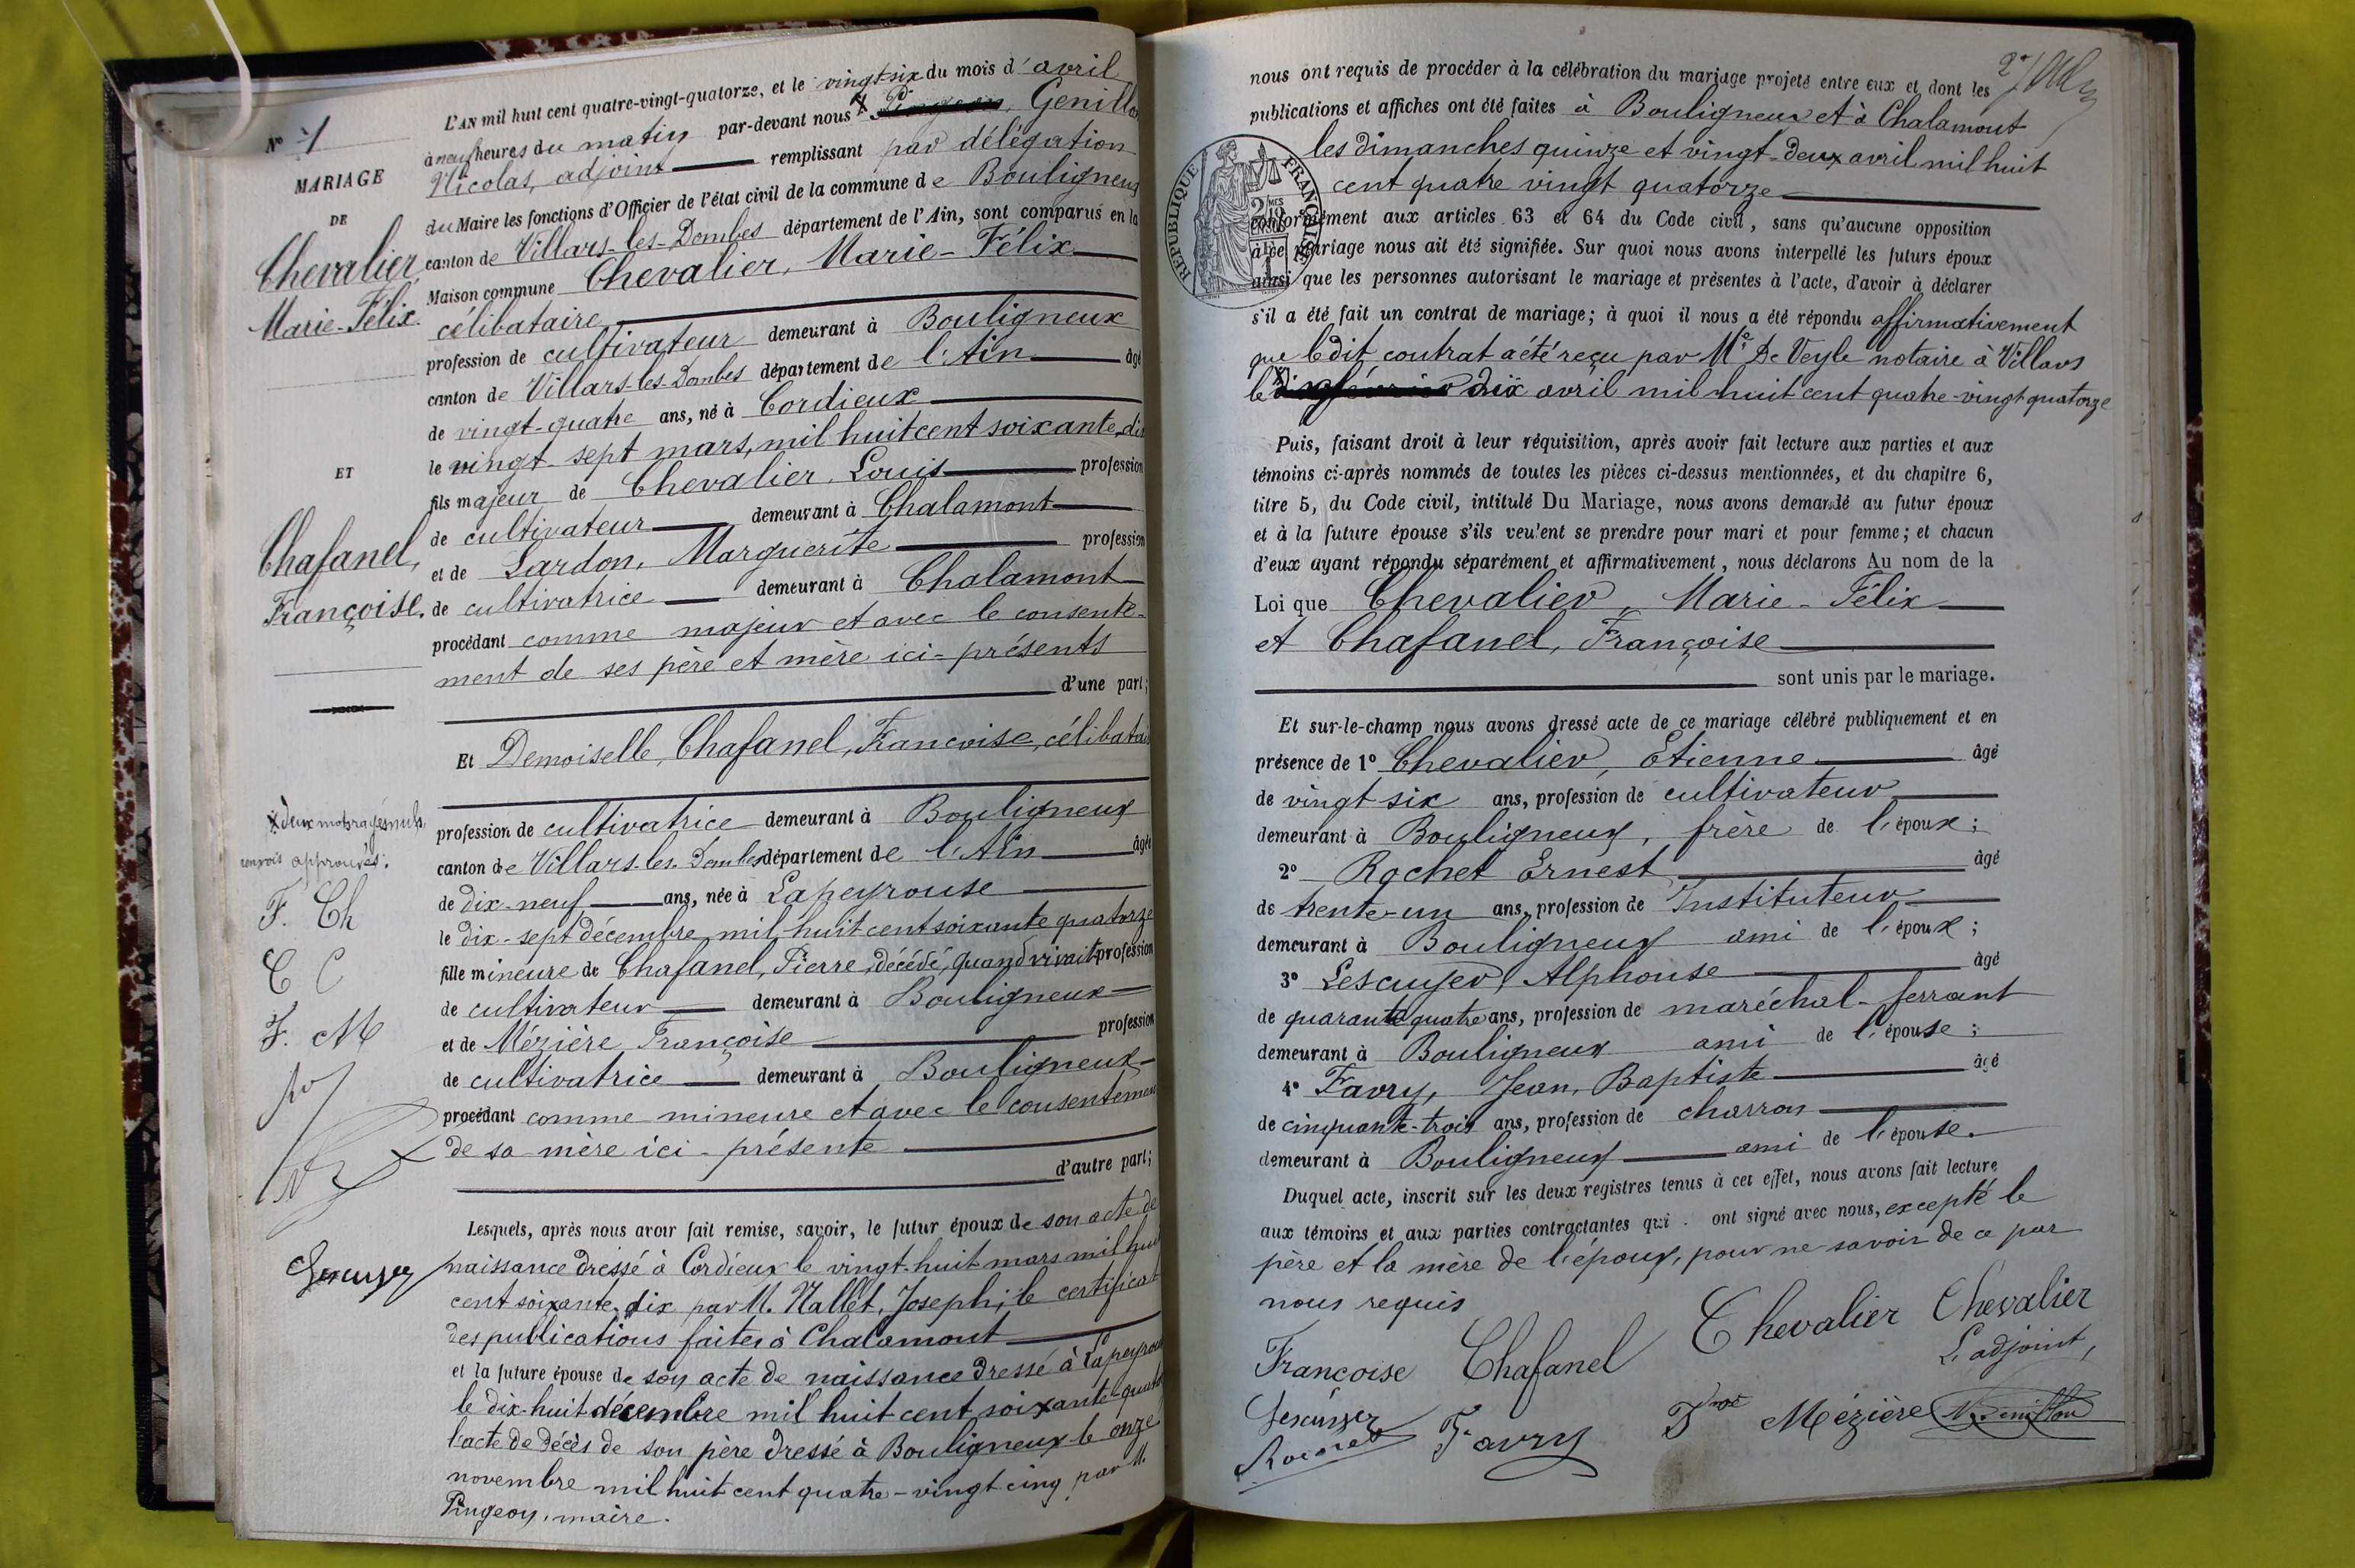 L'AN mil huit cent quatre-vingt-quatorze, et le vingt-six du mois d'avril
à neuf heures du matin par-devant nous Genillon
Nicolas, adjoint remplissant par délégation
du Maire les fonctions d'Officier de l'état civil de la commune de Bouligneux
canton de Villars-les-Dombes département de l'Ain, sont comparus en la
Maison commune Chevalier, Marie-Félix
célibataire
profession de cultivateur demeurant à Bouligneux
canton de Villars-les-Dombes département de l'Ain âgé
de vingt-quatre ans, né à Cordieux
le vingt-sept mars, mil huit cent soixante, dix
fils majeur de Chevalier, Louis profession
de cultivateur demeurant à Chalamont
et de Lardon, Marguerite profession
de cultivatrice demeurant à Chalamont
procédant comme majeur et avec le consente-
ment de ses père et mère ici-présents
d'une part;
Et Demoiselle, Chafanel, Francoise, célibataire
profession de cultivatrice demeurant à Bouligneux
canton de Villars-les-Dombes département de l'Ain âgée
de dix-neuf ans, née à Lapeyrouse
le dix-sept décembre mil huit cent soixante quatorze
fille mineure de Chafanel, Pierre, décédé, quand vivait profession
de cultivateur demeurant à Bouligneux
et de Mézière Françoise profession
de cultivatrice demeurant à Bouligneux
procédant comme mineure et avec le consentement
de sa mère ici-présente
d'autre part;
Lesquels, après nous avoir fait remise, savoir, le futur époux de son acte de
naissance dressé à Cordieux le vingt-huit mars mil huit
cent soixante, dix par M. Nallet, Joseph; le certificat
des publications faites à Chalamont
et la future épouse de son acte de naissance dressé à Lapeyrouse
le dix-huit décembre mil huit cent soixante-quatorze
l'acte de décès de son père dressé à Bouligneux le onze
novembre mil huit cent quatre-vingt cinq par M.
Pingeon, maire.
N° 1
MARIAGE
DE
Chevalier,
Marie-Félix
ET
Chafanel,
Françoise.
X deux mots rayés nuls
renvois approuvés.
F. Ch
C C
F. M
Lescuyer
nous ont requis de procéder à la célébration du mariage projeté entre eux et dont les
publications et affiches ont été faites à Bouligneux et à Chalamont
les dimanches quinze et vingt-deux avril mil huit
cent quatre vingt quatorze
REPUBLIQUE FRANÇAISE
conformément aux articles 63 et 64 du Code civil, sans qu'aucune opposition
à ce mariage nous ait été signifiée. Sur quoi nous avons interpellé les futurs époux
ainsi que les personnes autorisant le mariage et présentes à l'acte, d'avoir à déclarer
s'il a été fait un contrat de mariage; à quoi il nous a été répondu affirmativement
que ledit contrat a été reçu par Me De Veyle notaire à Villars
le dix avril mil huit cent quatre-vingt quatorze
Puis, faisant droit à leur réquisition, après avoir fait lecture aux parties et aux
témoins ci-après nommés de toutes les pièces ci-dessus mentionnées, et du chapitre 6,
titre 5, du Code civil, intitulé Du Mariage, nous avons demandé au futur époux
et à la future épouse s'ils veulent se prendre pour mari et pour femme; et chacun
d'eux ayant répondu séparément et affirmativement, nous déclarons Au nom de la
Loi que Chevalier, Marie-Félix
et Chafanel, Françoise
sont unis par le mariage.
Et sur-le-champ nous avons dressé acte de ce mariage célébré publiquement et en
présence de 1° Chevalier, Etienne âgé
de vingt six ans, profession de cultivateur
demeurant à Bouligneux, frère de l'époux;
2° Rochet Ernest âgé
de trente-un ans, profession de Instituteur
demeurant à Bouligneux ami de l'époux;
3° Lescuyer Alphonse âgé
de quarante quatre ans, profession de maréchal-ferrant
demeurant à Bouligneux ami de l'épouse;
4° Favry, Jean, Baptiste âgé
de cinquante-trois ans, profession de charron
demeurant à Bouligneux ami de l'épouse.
Duquel acte, inscrit sur les deux registres tenus à cet effet, nous avons fait lecture
aux témoins et aux parties contractantes qui ont signé avec nous, excepté le
père et la mère de l'époux, pour ne savoir de ce par
nous requis
Francoise Chafanel Chevalier Chevalier
L'adjoint,
Lescuyer Favry Fse Mézière N. Genillon
Rochet